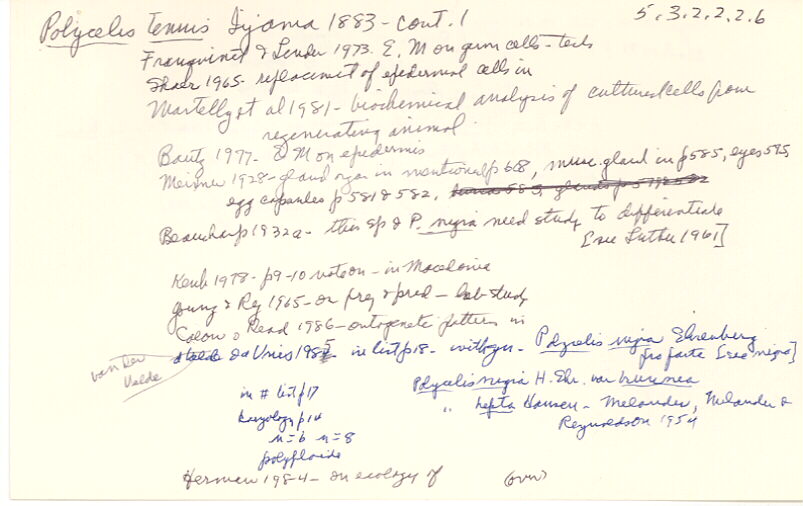 Polycelis tenuis Ijama 1883 - cont. 1 5.3.2.2.2.6
Franquinet & Lender 1973. E.M on germ cells - tests
1965 - replacement of epidermal cells in
Martelly et al 1981 - biochemical analysis of cultured cells from
regenerating animal.
Bautz 1977 - E M on epidermis
Meixner 1928 - gland organ in mentioned p 608, musc. gland in p 585, eyes 595,
egg capsules p 581 & 582,
Beauchamp 1932a - this sp & P. nigra need study to differentiate
[see Luther 1961]
1978 - p 9-10 note on - in Macedonia
Young & Rey 1965 - on prey & pred - lab study
& Read 1986 - ontogenetic patterns in
van der
Velde
de Vries 1985 in list p 18 - with syn - Polycelis nigra Ehrenberg
pro parte [see nigra]
in # list p 17 Polycelis nigra H. Ehr. var brunnea
karyology p 14 " hepta Hansen - Melander, Melander &
Reynoldson 1954
n=6 n=8
polyploids
Herman 1984 - on ecology of (over)